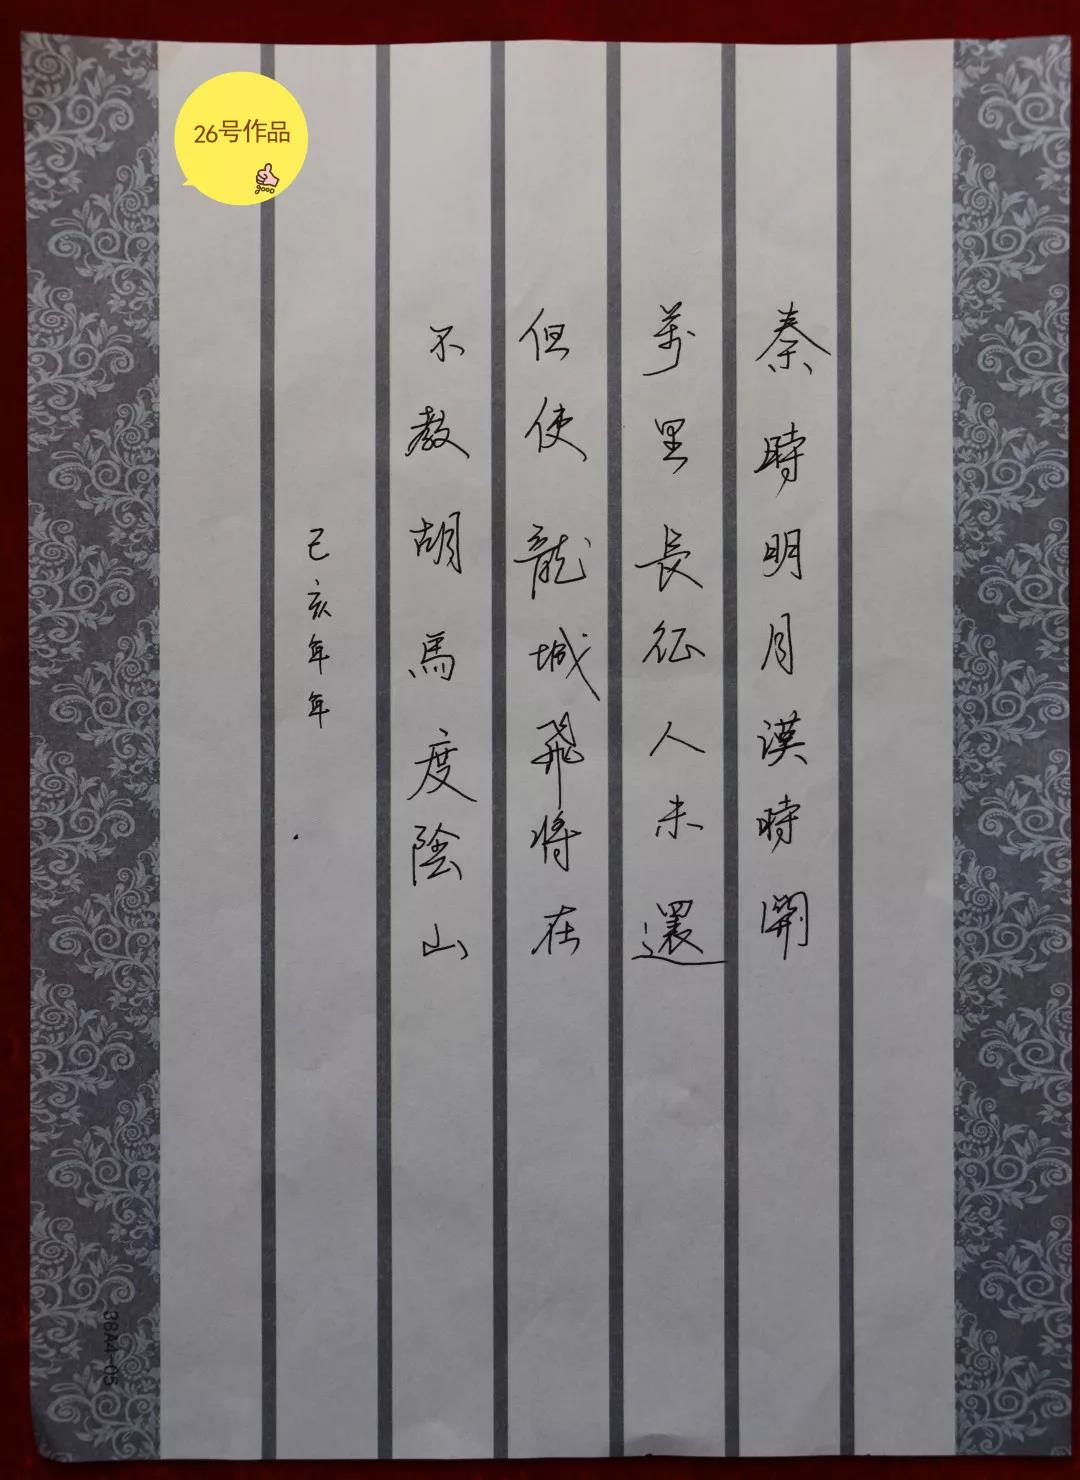 26号作品
秦時明月漢時開
萬里長征人未還
但使龍城飛將在
不教胡馬度陰山
己亥年年
38A4-05